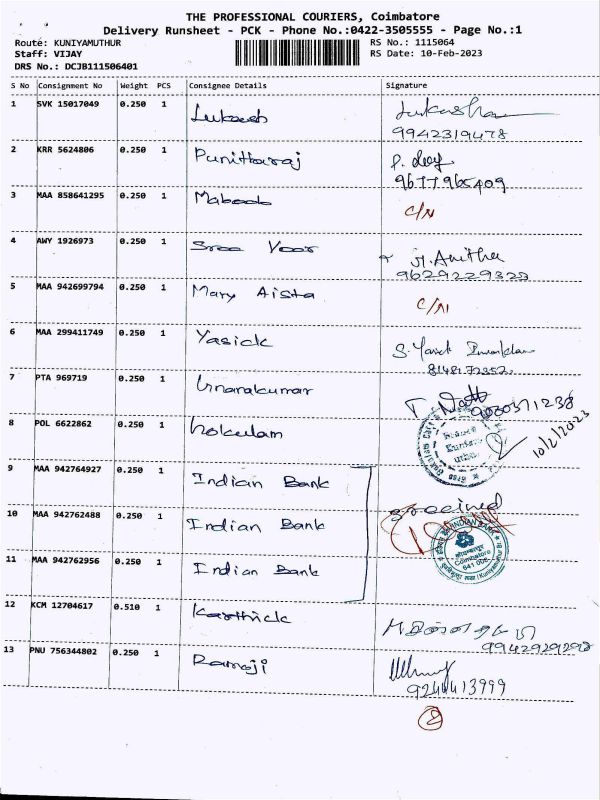 THE PROFESSIONAL COURIERS, Coimbatore
Delivery Runsheet - PCK - Phone No.:0422-3505555 - Page No.:1
Route: KUNIYAMUTHUR RS No.: 1115064
Staff: VIJAY RS Date: 10-Feb-2023
DRS No.: DCJB111506401
S No Consignment No Weight PCS Consignee Details Signature
1 SVK 15017049 0.250 1
9942319478
2 KRR 5624806 0.250 1 Punitharaj
9677965409
3 MAA 858641295 0.250 1 C/N
4 AWY 1926973 0.250 1 Sree Veer A. Anitha
9629229328
5 MAA 942699794 0.250 1 Mary Aista C/N
6 MAA 299411749 0.250 1 Yasick
8148172352
7 PTA 969719 0.250 1
9080571238
8 POL 6622862 0.250 1 10/2/2023
9 MAA 942764927 0.250 1 Indian Bank
received
10 MAA 942762488 0.250 1 Indian Bank
INDIAN BANK
Coimbatore
11 MAA 942762956 0.250 1 Indian Bank
12 KCM 12704617 0.510 1 Karthick
9942929298
13 PNU 756344802 0.250 1 Ramaji
9244413999